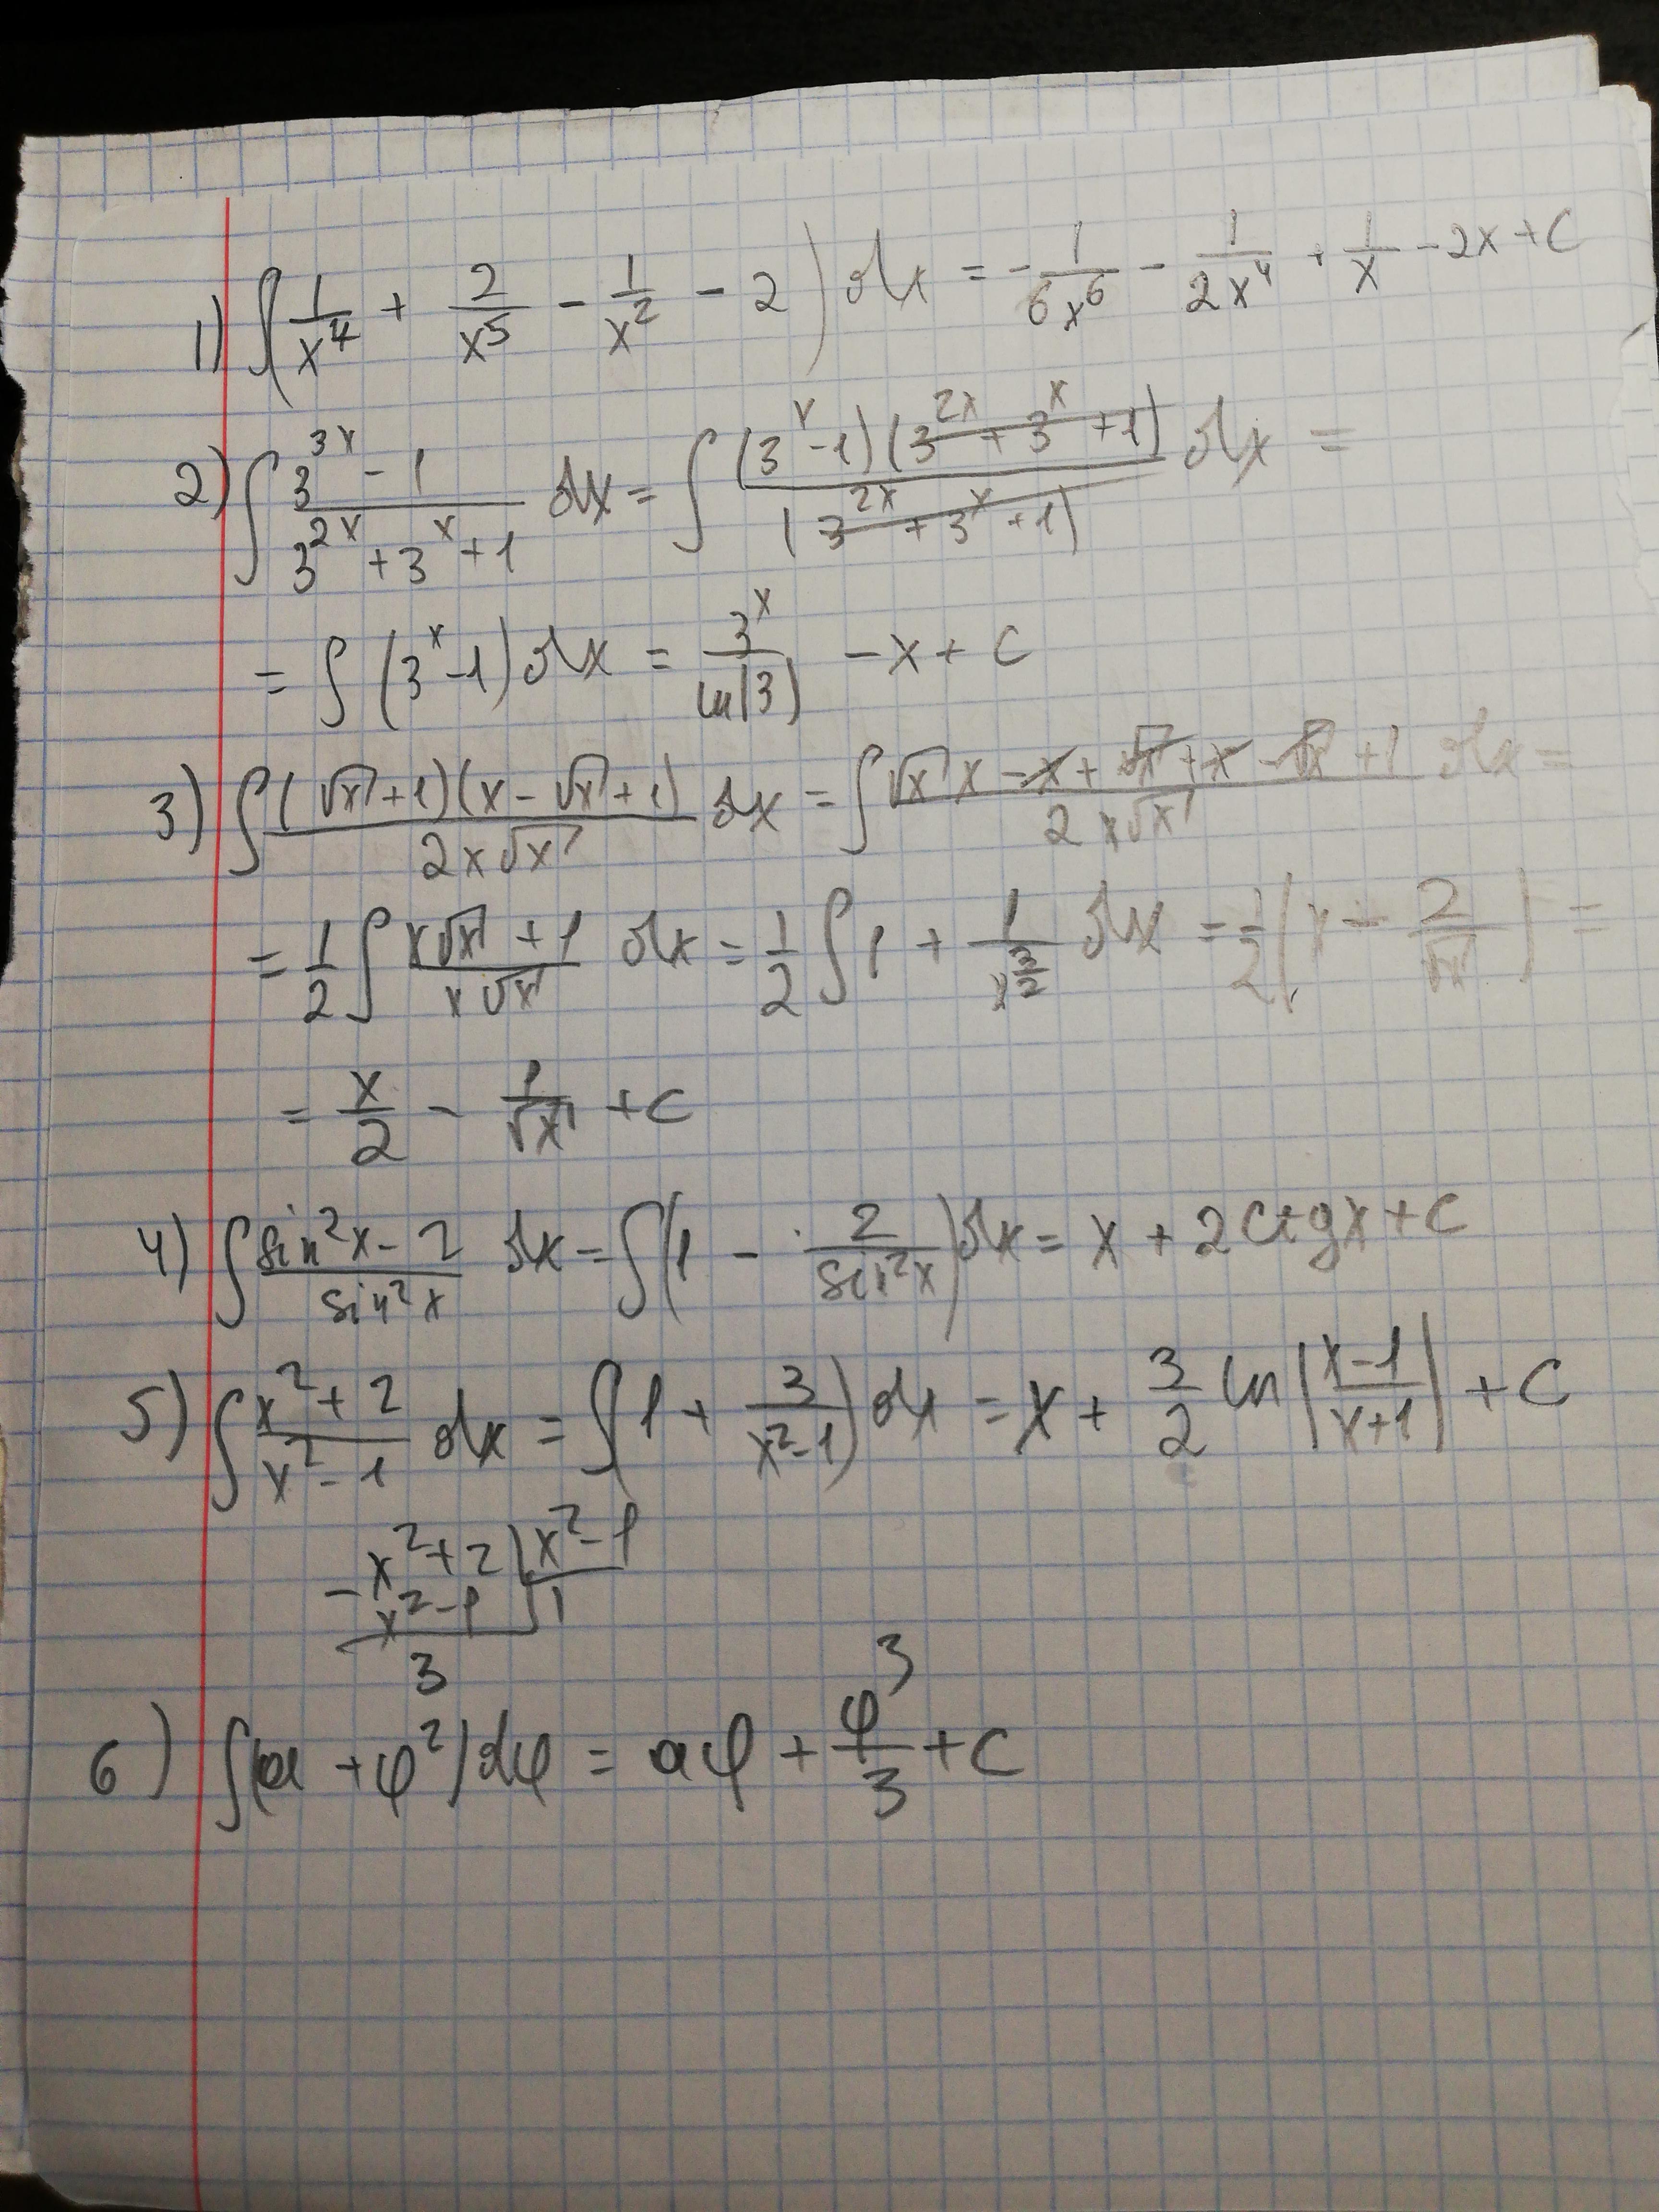 1) ∫(1/x⁴ + 2/x⁵ - 1/x² - 2)dx = -1/6x⁶ - 1/2x⁴ + 1/x - 2x + C
2) ∫ (3^(3x) - 1)/(3^(2x) + 3^x + 1) dx = ∫ (3^x - 1)(3^(2x) + 3^x + 1)/(3^(2x) + 3^x + 1) dx =
= ∫ (3^x - 1)dx = 3^x/ln(3) - x + C
3) ∫ (√x + 1)(x - √x + 1)/(2x√x) dx = ∫ (√x x - x + √x + x - √x + 1)/(2x√x) dx =
= 1/2 ∫ (x√x + 1)/(x√x) dx = 1/2 ∫ 1 + 1/x^(3/2) dx = 1/2(x - 2/√x) =
= x/2 - 1/√x + C
4) ∫ (sin²x - 2)/(sin²x) dx = ∫(1 - 2/sin²x)dx = x + 2ctgx + C
5) ∫ (x² + 2)/(x² - 1) dx = ∫(1 + 3/(x² - 1))dx = x + 3/2 ln|(x-1)/(x+1)| + C
- x² + 2 | x² - 1
x² - 1 | 1
3
6) ∫(a + φ²)dφ = aφ + φ³/3 + C